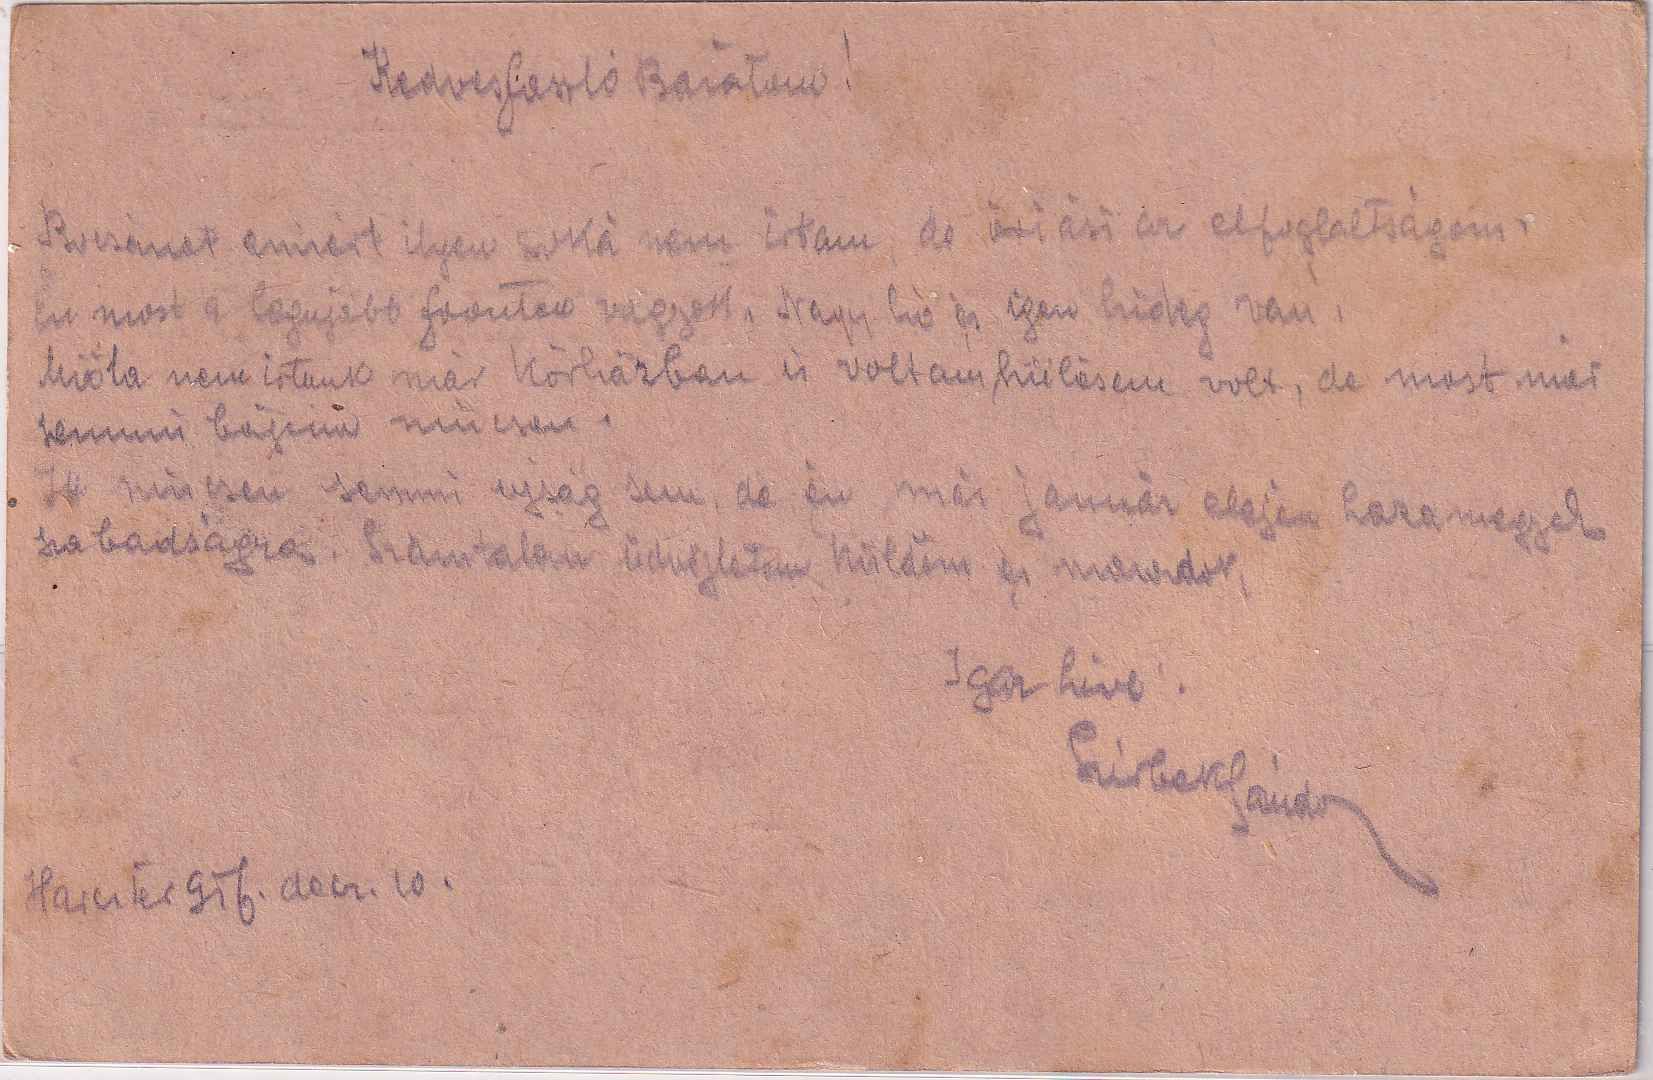 Kedves László Barátom!
Bocsánat amiért ilyen soká nem írtam, de óriási az elfoglaltságom.
Én most a legujabb fronton vagyok. Nagy hó és igen hideg van.
Mióta nem irtunk már Kórházban is voltam, hülésem volt, de most már
semmi bajom nincsen.
Itt nincsen semmi ujság sem, de én már január elején hazamegyek
szabadságra. Számtalan üdvözletem küldöm és maradok,
Igaz hive.
Szirbek Sándor
Harctér 916. dec. 10.